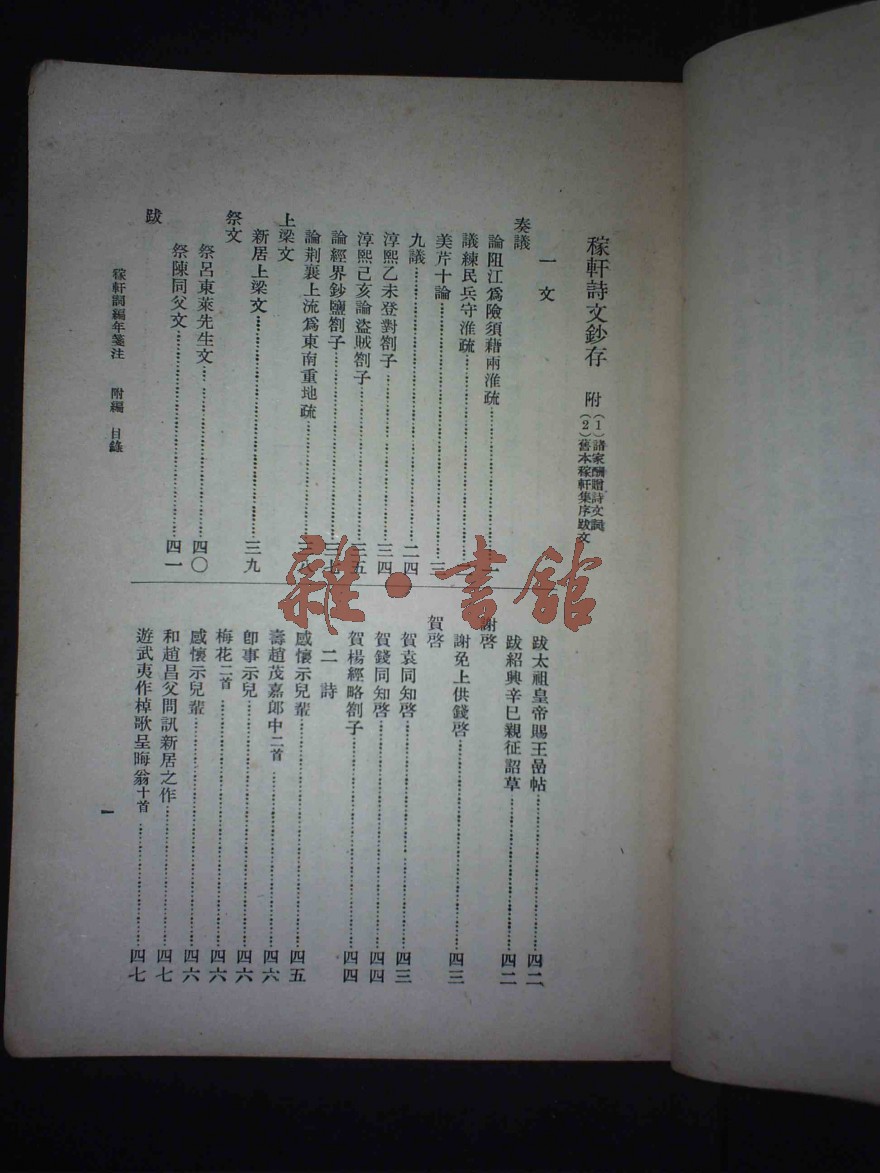 稼軒詩文鈔存 附
(1)諸家酬贈詩文詞
(2)舊本稼軒集序跋文
一 文
奏議
論阻江爲險須藉兩淮疏……一
議練民兵守淮疏……
美芹十論……三
九議……二四
淳熙乙未登對劄子……三四
淳熙己亥論盜賊劄子……三五
論經界鈔鹽劄子……三七
論荆襄上流爲東南重地疏……三八
上梁文
新居上梁文……三九
祭文
祭呂東萊先生文……四〇
祭陳同父文……四一
跋
跋太祖皇帝賜王嵒帖……四二
跋紹興辛巳親征詔草……四二
謝啓
謝免上供錢啓……四三
賀啓
賀袁同知啓……四三
賀錢同知啓……四四
賀楊經略劄子……四四
二 詩
感懷示兒輩……四五
壽趙茂嘉郎中二首……四六
卽事示兒……四六
梅花二首……四六
感懷示兒輩……四六
和趙昌父問訊新居之作……四七
遊武夷作棹歌呈晦翁十首……四七
稼軒詞編年箋注 附編 目錄
一
雜·書館